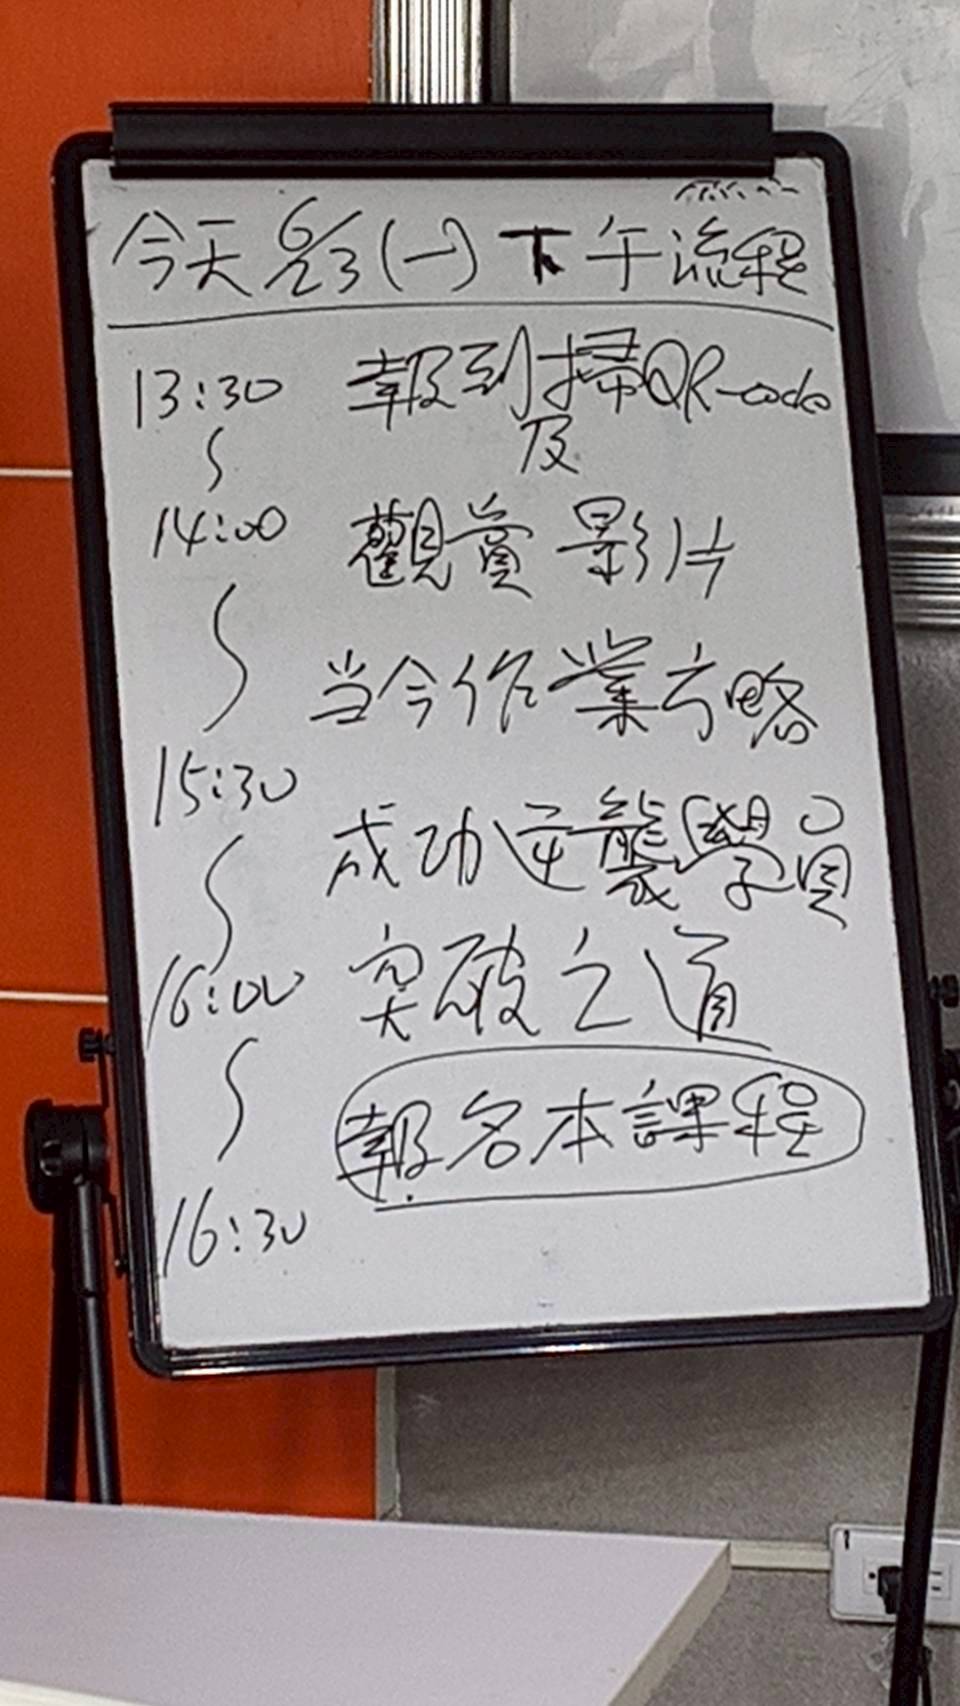 今天 6/23 (一) 下午流程
13:30 報到掃QR-code
及
14:00 觀賞影片
当今作業方略
15:30
成功逆襲學員
16:00 突破之道
報名本課程
16:30